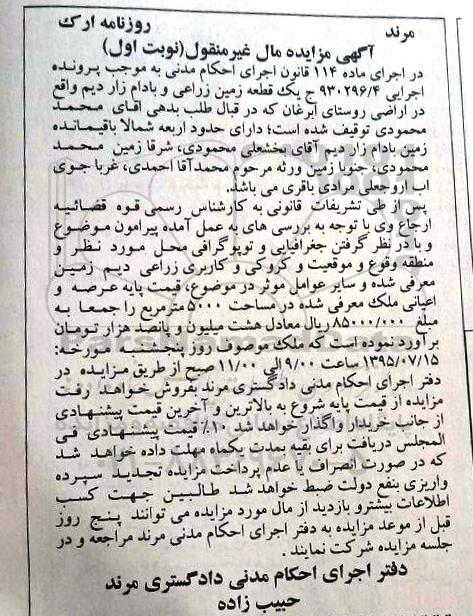 مرند روزنامه ارک
آگهی مزایده مال غیرمنقول(نوبت اول)
در اجرای ماده ۱۱۴ قانون اجرای احکام مدنی به موجب پرونده
اجرایی ۹۳۰۲۹۶/۴ ج یک قطعه زمین زراعی و بادام زار دیم واقع
در اراضی روستای ابرغان که در قبال طلب بدهی اقای محمد
محمودی توقیف شده است؛ دارای حدود اربعه شمالا باقیمانده
زمین بادام زار دیم آقای بخشعلی محمودی، شرقا زمین محمد
محمودی، جنوبا زمین ورثه مرحوم محمدآقا احمدی، غربا جوی
اب اروجعلی مرادی باقری می باشد.
پس از طی تشریفات قانونی به کارشناس رسمی قوه قضائیه
ارجاع وی با توجه به بررسی های به عمل آمده پیرامون موضوع
و با در نظر گرفتن جغرافیایی و توپوگرافی محل مورد نظر و
منطقه وقوع و موقعیت و کروکی و کاربری زراعی دیم زمین
معرفی شده و سایر عوامل موثر در موضوع، قیمت پایه عرصه و
اعیانی ملک معرفی شده در مساحت ۵۰۰۰ مترمربع را جمعا به
مبلغ ۸۵۰۰۰/۰۰۰ ریال معادل هشت میلیون و پانصد هزار تومان
برآورد نموده است که ملک موصوف روز پنجشنبه مورخه:
۱۳۹۵/۰۷/۱۵ ساعت ۹/۰۰ الی ۱۱/۰۰ صبح از طریق مزایده در
دفتر اجرای احکام مدنی دادگستری مرند بفروش خواهد رفت
مزایده از قیمت پایه شروع به بالاترین و آخرین قیمت پیشنهادی
از جانب خریدار واگذار خواهد شد ۱۰٪ قیمت پیشنهادی فی
المجلس دریافت برای بقیه بمدت یکماه مهلت داده خواهد شد
که در صورت انصراف یا عدم پرداخت مزایده تجدید سپرده
واریزی بنفع دولت ضبط خواهد شد طالبین جهت کسب
اطلاعات بیشترو بازدید از مال مورد مزایده می توانند پنج روز
قبل از موعد مزایده به دفتر اجرای احکام مدنی مرند مراجعه و در
جلسه مزایده شرکت نمایند .
دفتر اجرای احکام مدنی دادگستری مرند
حبیب زاده